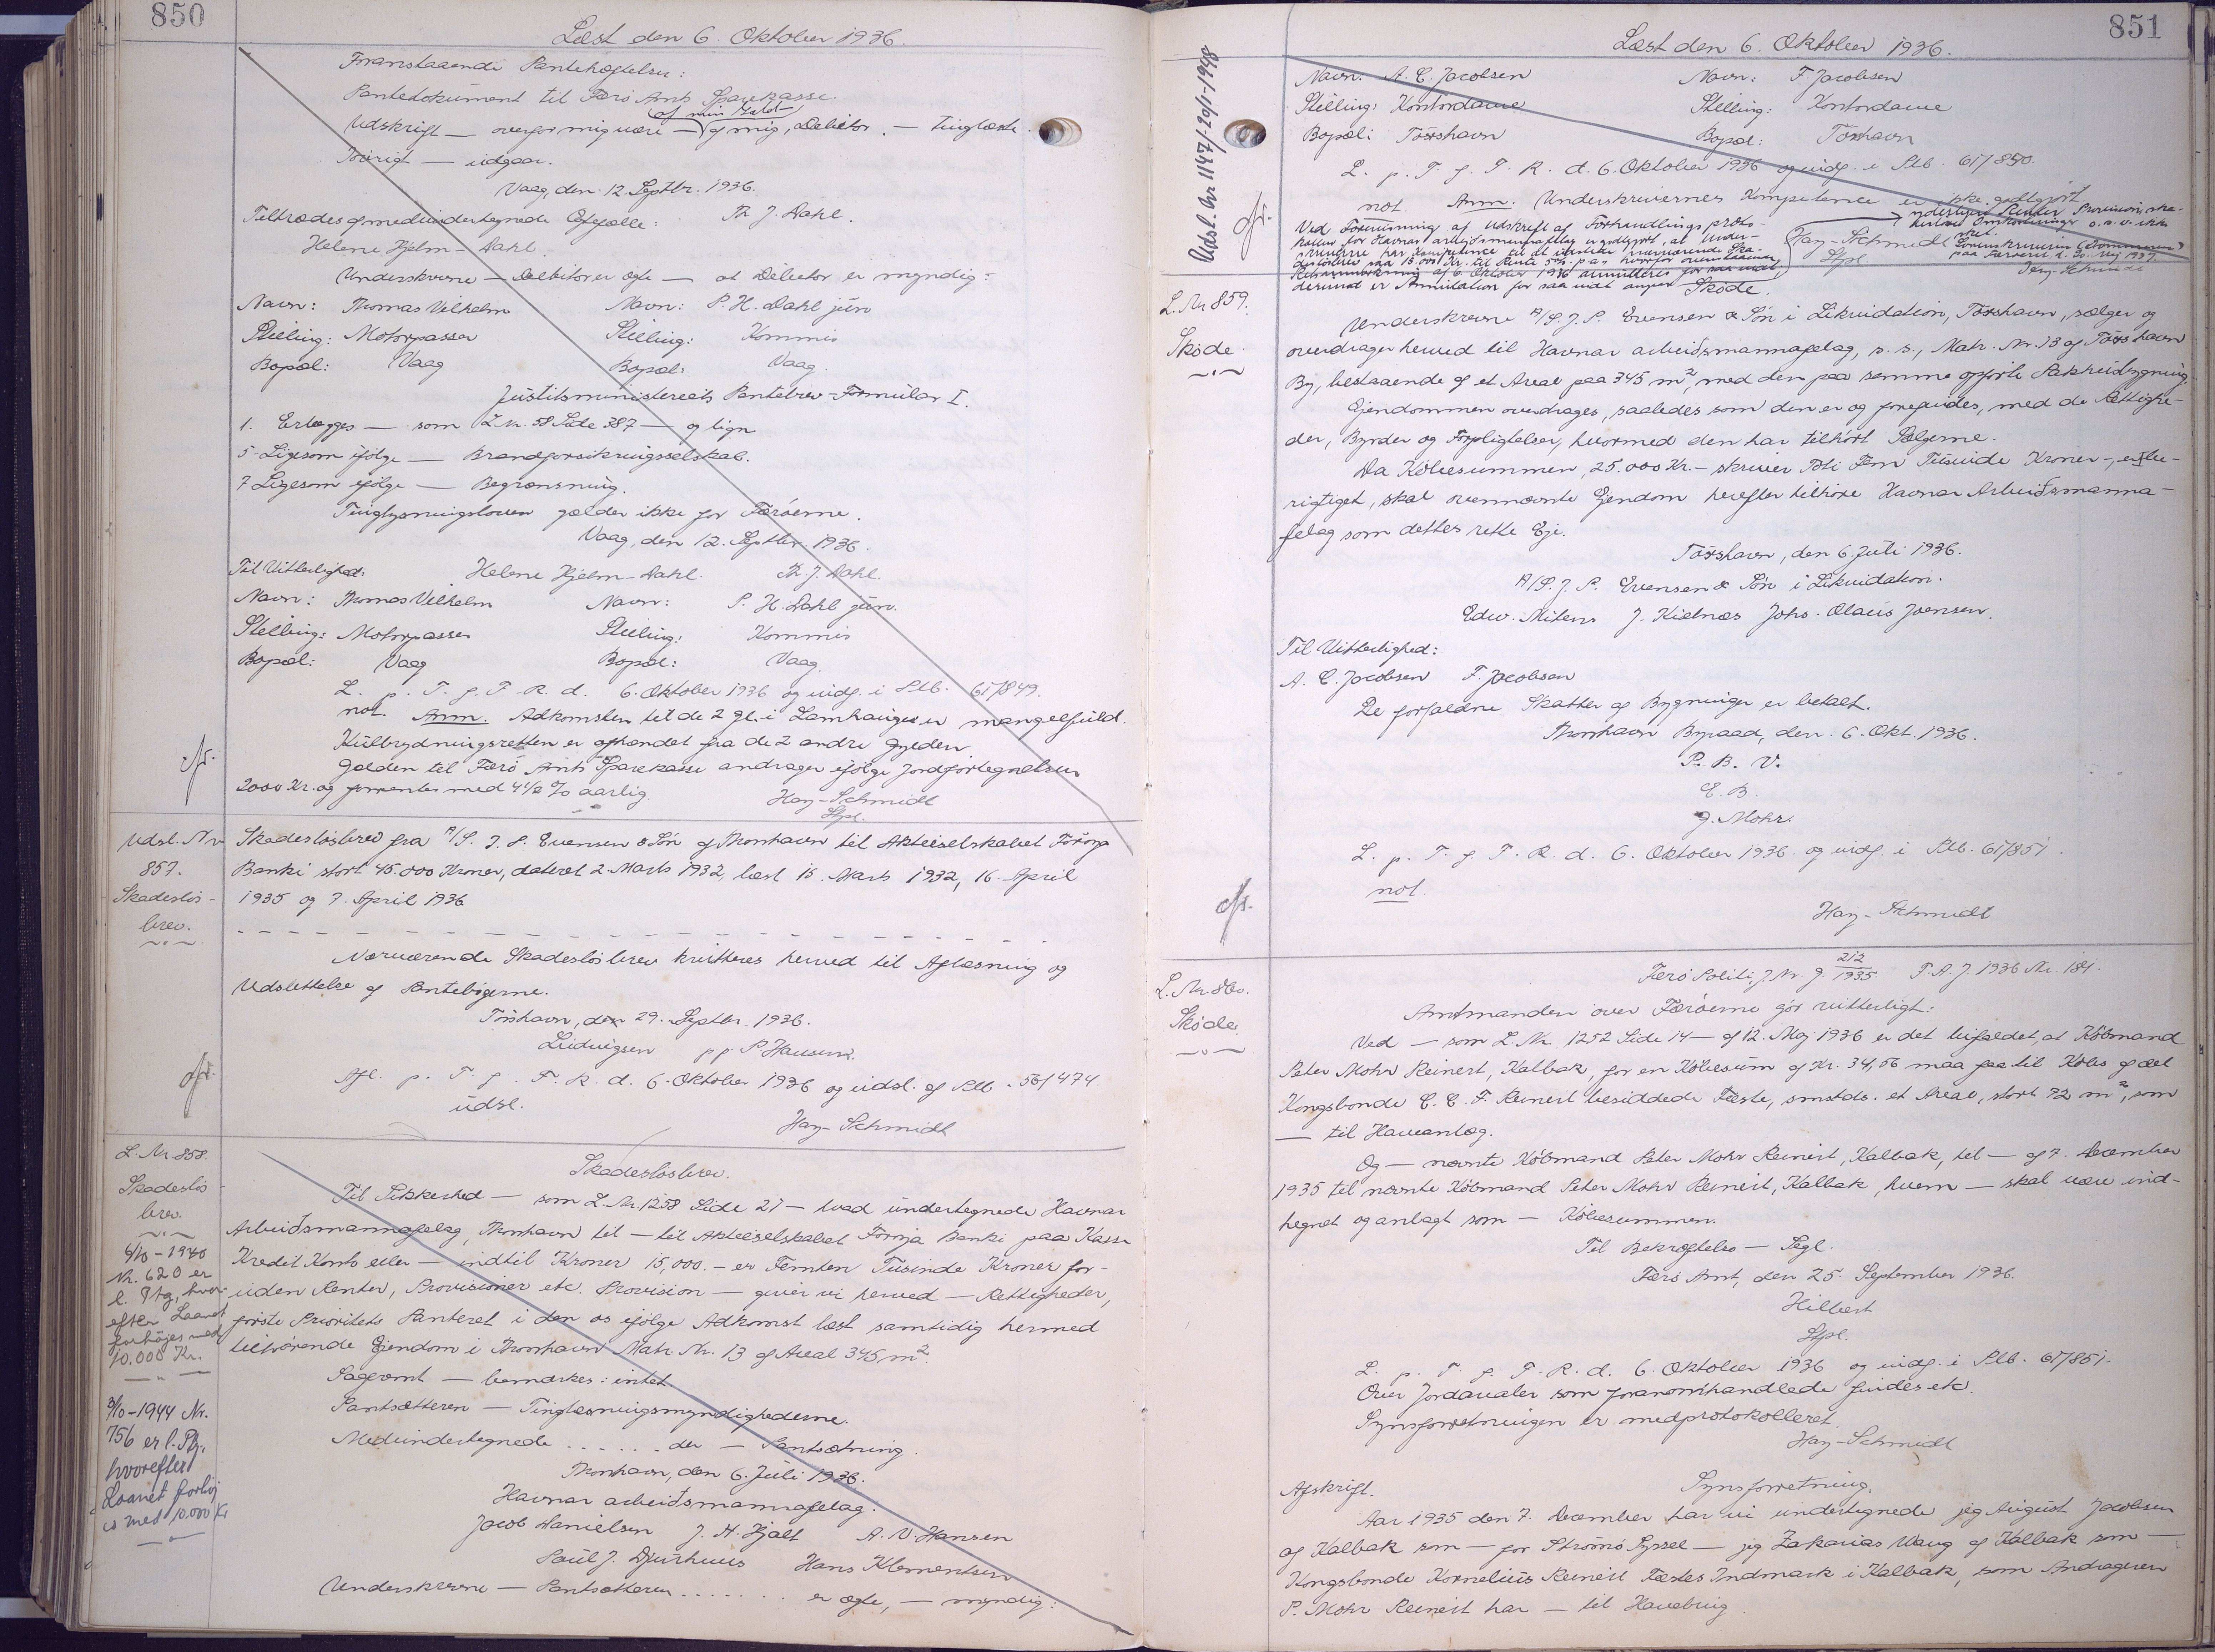 850
Læst den 6. Oktober 1936.
Foranstaaende Pantehæftelser:
Pantedokument til Færø Amts Sparekasse.
Udskrift — overfor mig være — af min Gæld — af mig, Debitor. — tinglæste
Iøvrigt — udgaar.
Vaag, den 12. Septbr. 1936.
Tiltrædes af medundertegnede Ægtefælle: Th. J. Dahl.
Helene Hjelm-Dahl.
Underskrevne — Debitor er ægte — at Debitor er myndig:
Navn: Thomas Vilhelm Navn: P. H. Dahl jun
Stilling: Motorpasser Stilling: Kommis
Bopæl: Vaag Bopæl: Vaag.
Justitsministeriets Pantebrev-Formular I.
1. Erlægges — som L. nr. 58 Side 387 — og lign
5 Ligesom ifølge — Brandforsikringsselskab.
7 Ligesom ifølge — Begrænsning.
Tinglysningsloven gælder ikke for Færøerne.
Vaag, den 12. Septbr. 1936.
Til Vitterlighed: Helene Hjelm-Dahl. Th. J. Dahl.
Navn: Thomas Vilhelm Navn: P. H. Dahl jun.
Stilling: Motorpasser Stilling: Kommis
Bopæl: Vaag Bopæl: Vaag.
L. p. T. f. F. R. d. 6. Oktober 1936 og indf. i Ptb. 61/849.
not. Anm. Adkomsten til de 2 gl. i Lamhauge er mangelfuld.
Kulbrydningsretten er afhændet fra de 2 andre Gylden
Gælden til Færø Amts Sparekasse andrager ifølge Jordfortegnelsen
2000 Kr. og forrentes med 4½ % aarlig.
Hay-Schmidt
Stpl.
cfr.
Udsl. Nr
857.
Skadesløs-
brev.
Skadesløsbrev fra A/S. J. P. Evensen & Søn af Thorshavn til Aktieselskabet Föroya
Banki stort 45.000 Kroner, dateret 2. Marts 1932, læst 15. Marts 1932, 16. April
1935 og 7. April 1936
Nærværende Skadesløsbrev kvitteres herved til Aflæsning og
Udslettelse af Pantebøgerne.
Tórshavn, den 29. Septbr. 1936.
Ludvigsen pp. P Hansen.
Afl. p. T. f. F. R. d. 6. Oktober 1936 og udsl. af Ptb. 56/474.
udsl.
Hay-Schmidt
cfr.
L. Nr 858.
Skadesløs-
brev.
8/10-1940
Nr. 620 er
l. Ptg, hvor-
efter Laanet
forhöjes med
10.000 Kr.
3/10-1944 Nr.
756 er l. Ptg,
hvorefter
Laanet forhöj
es med 10.000 Kr
Skadesløsbrev.
Til Sikkerhed — som L. Nr. 1258 Side 21 — hvad undertegnede Havnar
Arbeiðsmannafelag, Thorshavn til — til Aktieselskabet Föroya Banki paa Kasse
Kredit Konto eller — indtil Kroner 15,000.- er Femten Tusinde Kroner for-
uden Renter, Provisioner etc. Provision — giver vi herved — Rettigheder,
første Prioritets Panteret i den os ifølge Adkomst læst samtidig hermed
tilhørende Ejendom i Thorshavn Matr. Nr. 13 af Areal 345 m².
Iøvrigt — bemærkes: intet.
Pantsætteren — Tinglæsningsmyndighederne.
Medundertegnede . . . . . . der — Pantsætning.
Thorshavn, den 6. Juli 1936.
Havnar arbeiðsmannafelag:
Jacob Danielsen J. H. Hjalt A. V. Hansen
Poul J. Djurhuus Hans Klementsen
Underskrevne — Pantsætteren . . . . . . . er ægte, — myndig:
851
Læst den 6. Oktober 1936.
Udsl. Nr 1147/-29/1-1948
Navn: A. C. Jacobsen Navn: F. Jacobsen
Stilling: Kontordame Stilling: Kontordame
Bopæl: Tórshavn Bopæl: Tórshavn
L. p. T. f. F. R. d. 6. Oktober 1936 og indf. i Ptb. 61/850.
not. Anm. Underskrivernes Kompetence er ikke godtgjort
cfr.
Ved Forevisning af Udskrift af Forhandlingsproto-
kollen for Havnar arbeiðsmannafelag er godtgjort, at Under-
Hay-Schmidt
Stpl.
L. Nr 859.
Skøde.
Skøde.
Underskrevne A/S. J. P. Evensen & Søn i Likvidation, Tórshavn, sælger og
overdrager herved til Havnar arbeiðsmannafelag, s. s., Matr. Nr. 13 af Tórshavn
By, bestaaende af et Areal paa 345 m², med den paa samme opførte Pakhusbygning.
Ejendommen overdrages, saaledes som den er og forefindes, med de Rettighe-
der, Byrder og Forpligtelser, hvormed den har tilhört Sælgerne.
Da Købesummen, 25.000 Kr. - skriver Toti Fem Tusinde Kroner -, er be-
rigtiget, skal ovennævnte Ejendom herefter tilhöre Havnar Arbeiðsmanna-
felag som dettes rette Eje.
Tórshavn, den 6. Juli 1936.
A/S. J. P. Evensen & Søn i Likvidation.
Edw. Mitens J. Kielnæs Johs. Olaus Joensen.
Til Vitterlighed:
A. C. Jacobsen F. Jacobsen
De forfaldne Skatter af Bygninger er betalt.
Thorshavn Byraad, den 6. Okt. 1936.
P. B. V.
E. B.
J. Mohr.
L. p. T. f. F. R. d. 6. Oktober 1936 og indf. i Ptb. 61/851.
not.
Hay-Schmidt
cfr.
L. Nr. 860.
Skøde.
Færø Politi, J. Nr. J. 212/1935 F. A. J. 1936 Nr. 181.
Amtmanden over Færøerne gör vitterligt:
Ved — som L. Nr. 1252 Side 14 — af 12. Maj 1936 er det bifaldet, at Købmand
Peter Mohr Reinert, Kalbak, for en Købesum af Kr. 34,56 maa faa til Købs af det
Kongsbonde C. C. F. Reinert besiddede Fæste, smstds. et Areal, stort 72 m², som
— til Haveanlæg.
Og — nævnte Købmand Peter Mohr Reinert, Kalbak, til — af 7. December
1935 til nævnte Købmand Peter Mohr Reinert, Kalbak, hvem — skal være ind-
hegnet og anlagt som — Købesummen.
Til Bekræftelse — Segl.
Færø Amt, den 25. September 1936.
Hilbert
Stpl.
L. p. T. f. F. R. d. 6. Oktober 1936 og indf. i Ptb. 61/851.
Over Jordarealer som foranomhandlede findes etc.
Synsforretningen er medprotokolleret.
Hay-Schmidt
Afskrift.
Synsforretning.
Aar 1935 den 7. December har vi undertegnede jeg August Jacobsen
af Kalbak som — for Strömö Syssel — jeg Zakarias Wang af Kalbak som —
Kongsbonde Kornelius Reinert Fæstes Indmark i Kalbak, som Andrageren
P. Mohr Reinert har — til Havebrug.